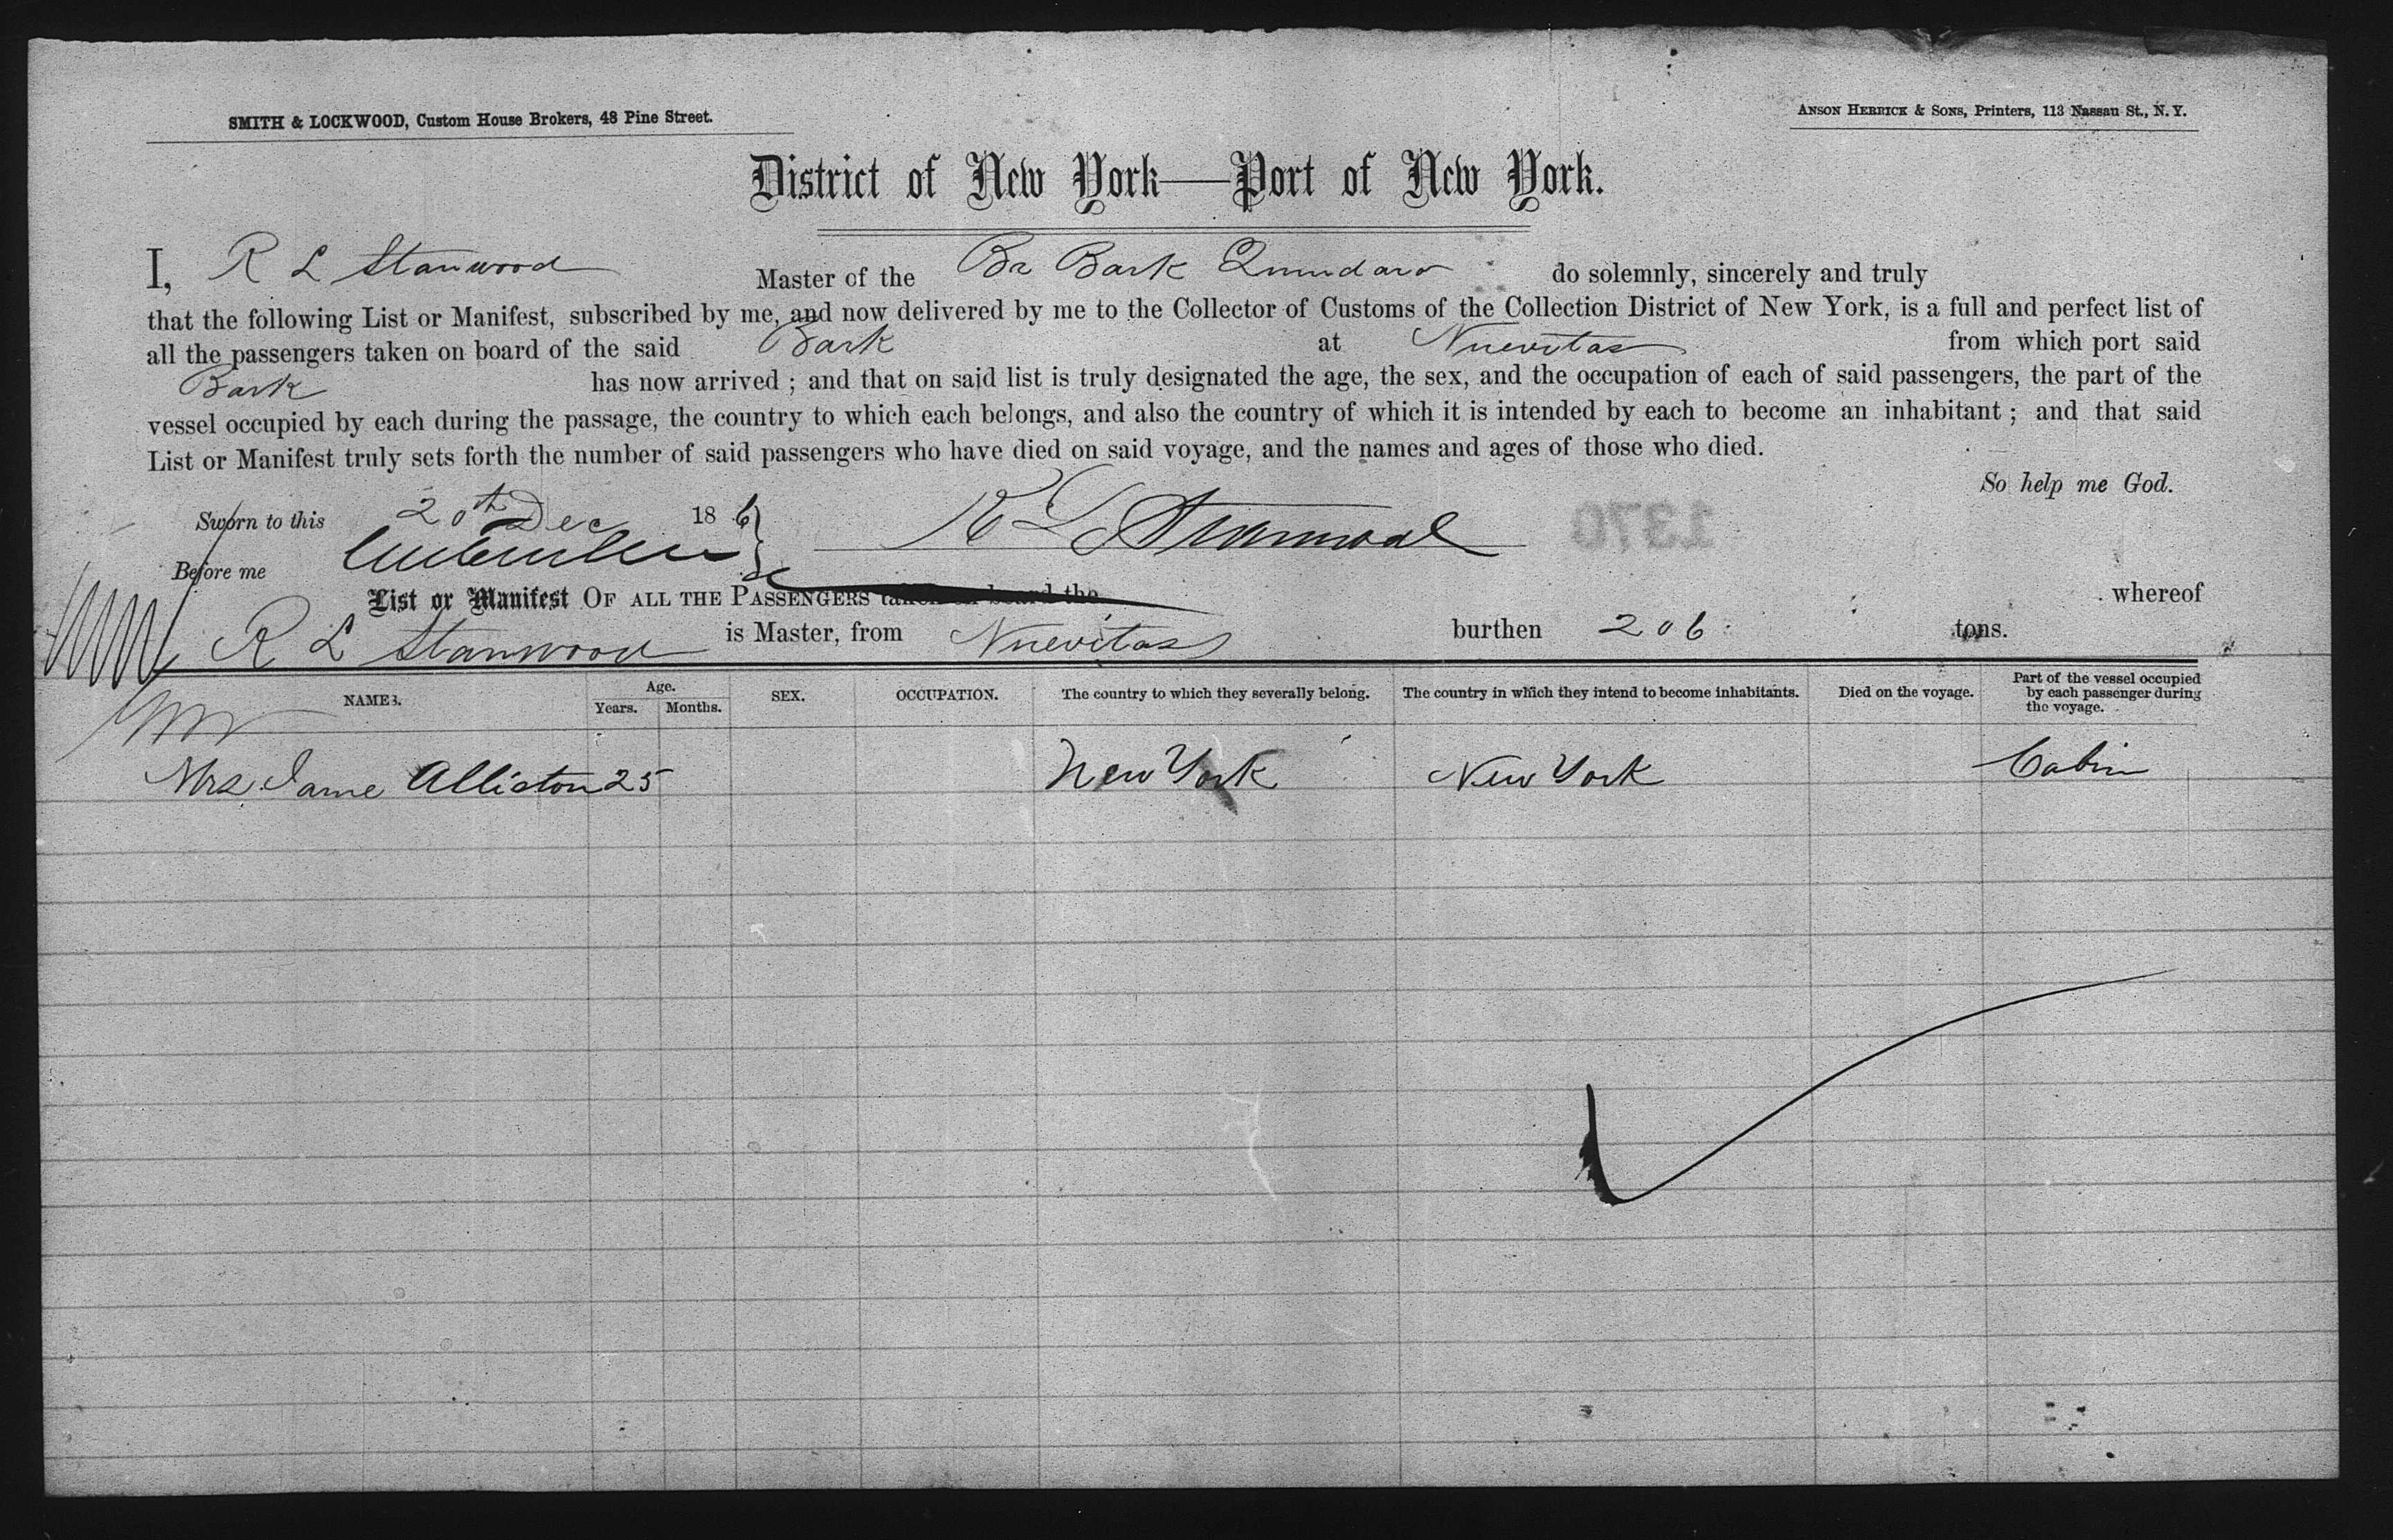 SMITH & LOCKWOOD, Custom House Brokers, 48 Pine Street.
ANSON HERRICK & SONS, Printers, 113 Nassau St., N. Y.
District of New York—Port of New York.
I, R L Stanwood Master of the Br Bark do solemnly, sincerely and truly
that the following List or Manifest, subscribed by me, and now delivered by me to the Collector of Customs of the Collection District of New York, is a full and perfect list of
all the passengers taken on board of the said Bark at Nuevitas from which port said
Bark has now arrived ; and that on said list is truly designated the age, the sex, and the occupation of each of said passengers, the part of the
vessel occupied by each during the passage, the country to which each belongs, and also the country of which it is intended by each to become an inhabitant ; and that said
List or Manifest truly sets forth the number of said passengers who have died on said voyage, and the names and ages of those who died.
So help me God.
Sworn to this 20th Dec 186 R L Stanwood
1370
Before me
List or Manifest OF ALL THE PASSENGERS taken on board the whereof
R L Stanwood is Master, from Nuevitas burthen 206 tons.
NAMES. Age. Years. Months. SEX. OCCUPATION. The country to which they severally belong. The country in which they intend to become inhabitants. Died on the voyage. Part of the vessel occupied by each passenger during the voyage.
Mrs Jame Alliston 25 New York New York Cabin